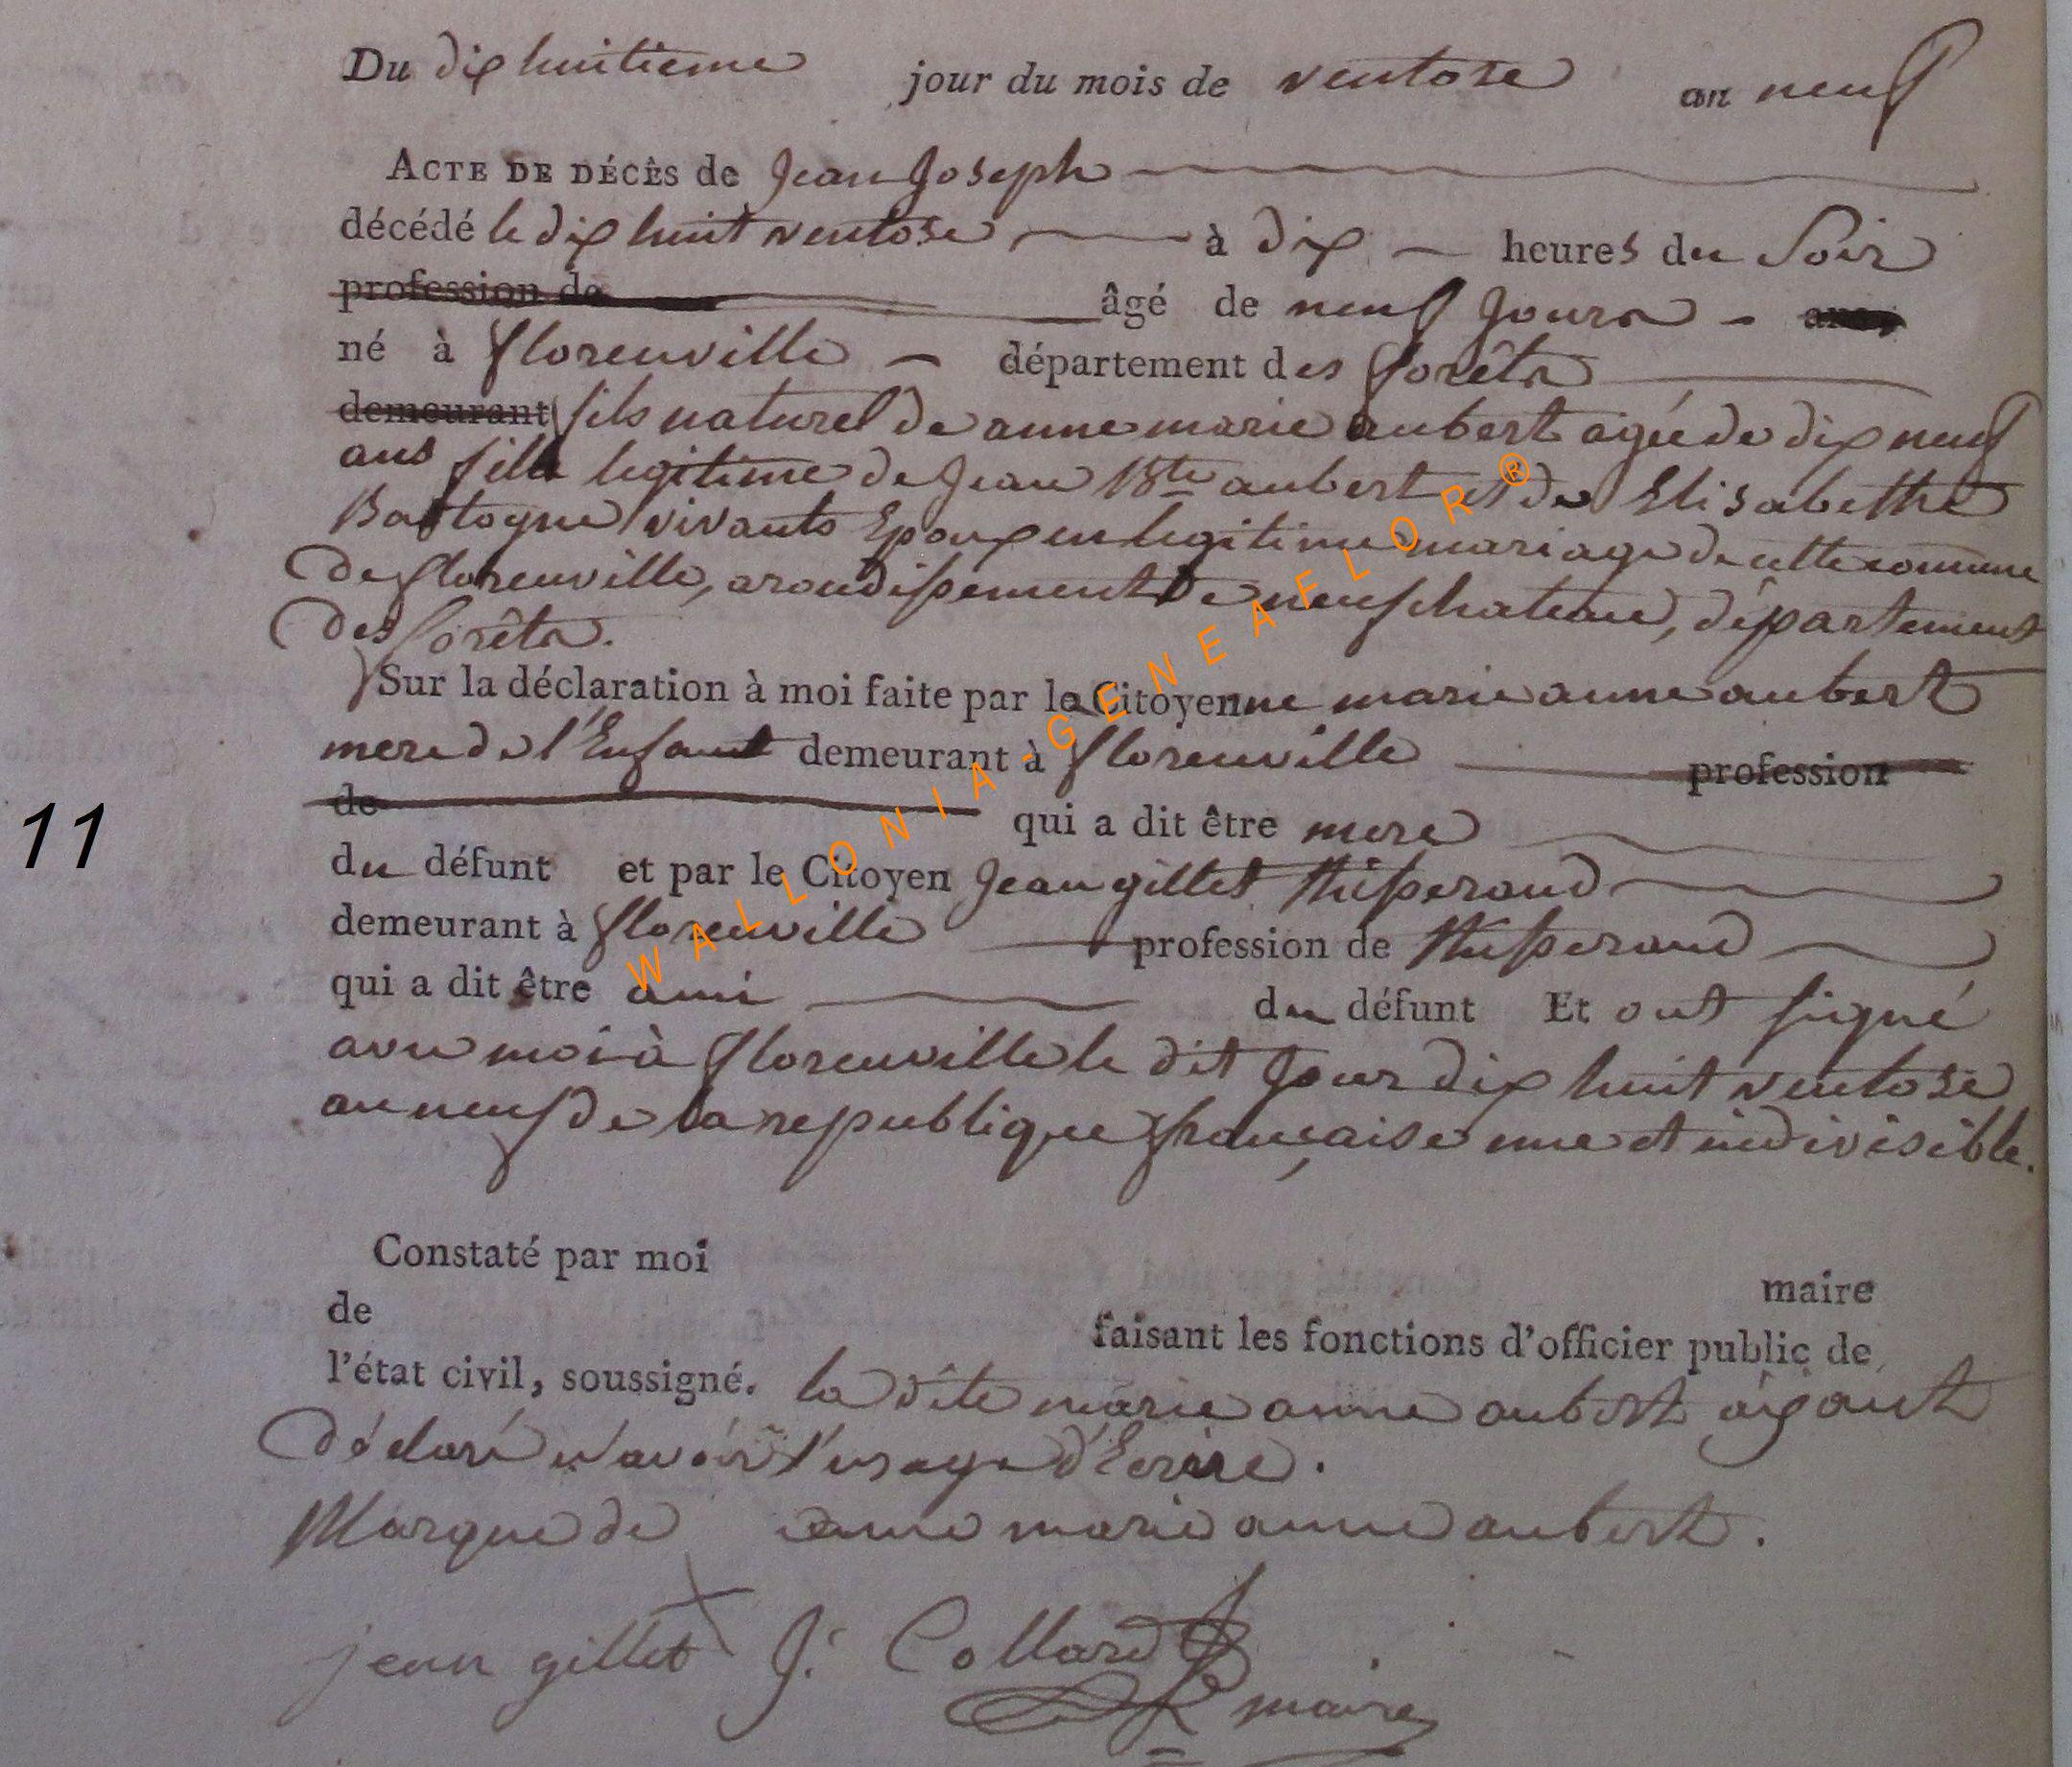 Du dix huitieme jour du mois de ventose an neuf
ACTE DE DÉCÈS de Jean Joseph
décédé le dix huit ventose à dix heures du Soir
profession de âgé de neuf Jours ans,
né à florenville département des forêts
demeurant fils naturel de anne marie aubert agée de dix neuf
ans fille legitime de Jean Bte aubert et de Elisabethe
Bastogne vivants Epoux en legitime mariage de cette comune
de florenville, arondissement de neufchateau, département
des forêts.
Sur la déclaration à moi faite par la Citoyenne marie anne aubert
mere de l'Enfant demeurant à florenville profession
de qui a dit être mere
du défunt et par le Citoyen Jean gillet tisserand
demeurant à florenville profession de tisserand
qui a dit être ami du défunt Et ont signé
avec moi à florenville le dit Jour dix huit ventose
an neuf de la republique française une et indivisible.
11
Constaté par moi maire
de faisant les fonctions d'officier public de
l'état civil, soussigné. la dite marie anne aubert aÿant
déclaré n'avoir l'usage d'Ecrire.
Marque de anne marie anne aubert.
jean gillet J: Collard
maire
WALLONIA-GENEAFLOR ®